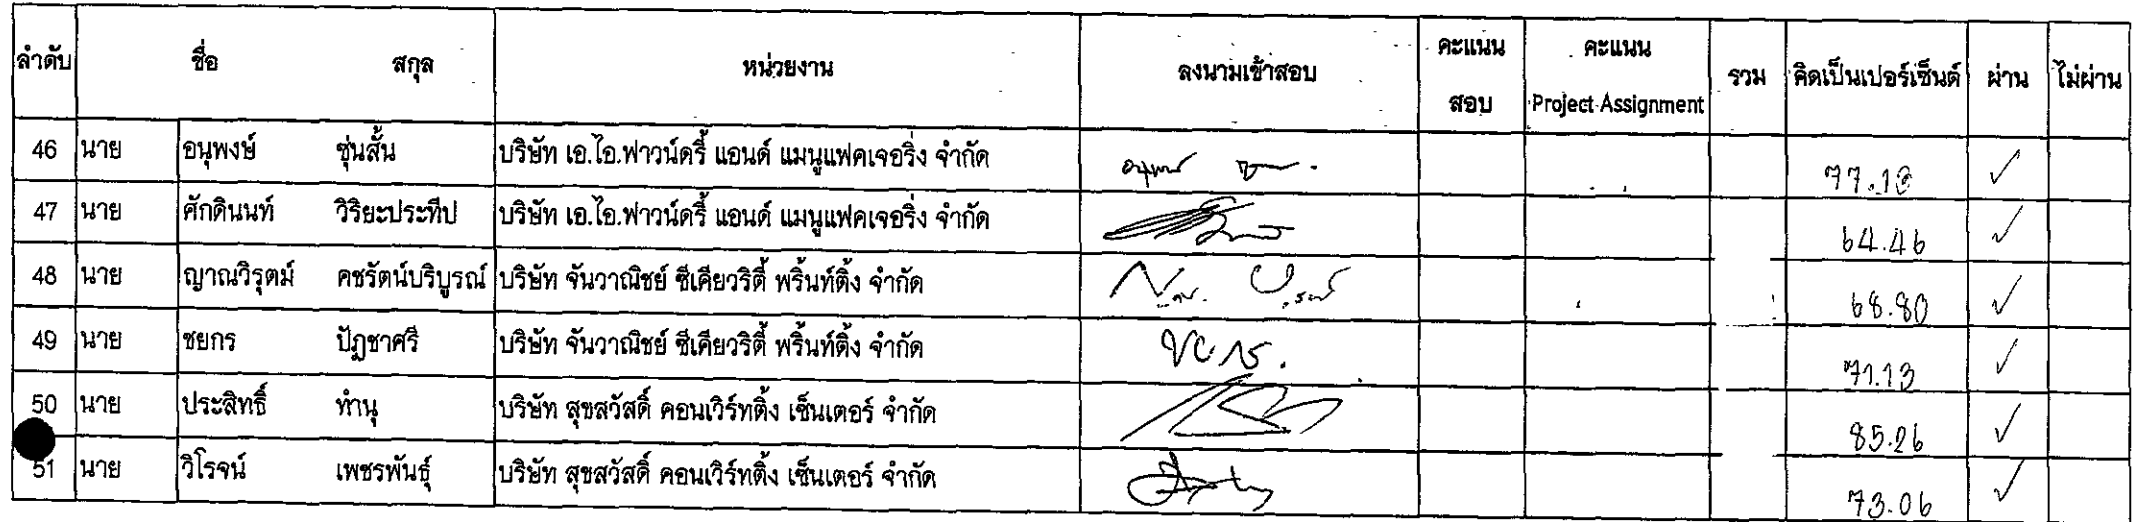 ลำดับ ชื่อ สกุล หน่วยงาน ลงนามเข้าสอบ คะแนนสอบ คะแนน Project Assignment รวม คิดเป็นเปอร์เซ็นต์ ผ่าน ไม่ผ่าน
46 นาย อนุพงษ์ ซุ่นสั้น บริษัท เอ.ไอ.ฟาวน์ดรี้ แอนด์ แมนูแฟคเจอริ่ง จำกัด 77.13 ✓
47 นาย ศักดินนท์ วิริยะประทีป บริษัท เอ.ไอ.ฟาวน์ดรี้ แอนด์ แมนูแฟคเจอริ่ง จำกัด 64.46 ✓
48 นาย ญาณวิรุตม์ คชรัตน์บริบูรณ์ บริษัท จันวาณิชย์ ซีเคียวริตี้ พริ้นท์ติ้ง จำกัด 68.80 ✓
49 นาย ชยกร ปัฏชาศรี บริษัท จันวาณิชย์ ซีเคียวริตี้ พริ้นท์ติ้ง จำกัด ชยกร. 71.13 ✓
50 นาย ประสิทธิ์ ทำนุ บริษัท สุขสวัสดิ์ คอนเวิร์ทติ้ง เซ็นเตอร์ จำกัด 85.26 ✓
51 นาย วิโรจน์ เพชรพันธุ์ บริษัท สุขสวัสดิ์ คอนเวิร์ทติ้ง เซ็นเตอร์ จำกัด 73.06 ✓